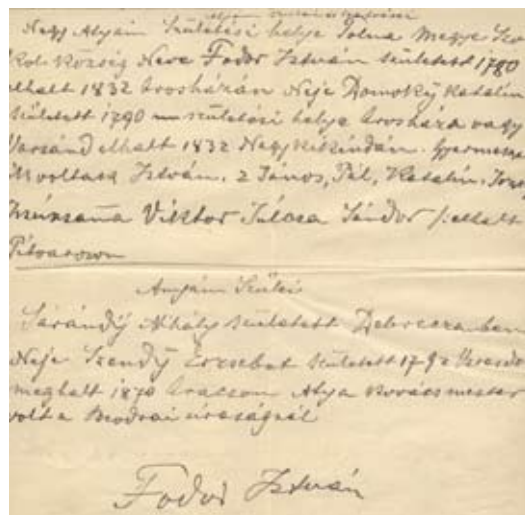 Nagy Atyám Születési helye Tolna Megye
község Neve Fodor István született 1780
elhalt 1832 Orosházán Neje Domoky Katalin
született 1790 születési helye Orosháza vagy
Varsánd elhalt 1832 Nagykikindán.
voltak István, 2 János, Pál, Katalin,
Zsuzsanna Viktor Sándor elhalt
Pitvaroson
Anyám Szülei
Sarándÿ Mihály született Debreczenben
Neje Szendÿ Erzsebet született 179
meghalt 1870 Atya Kovácsmester
volt a uraságnál
Fodor István